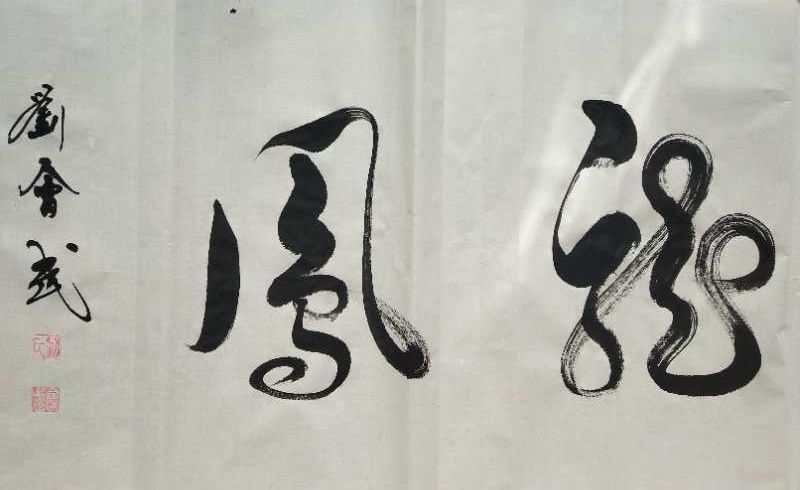 龍鳳
劉會武